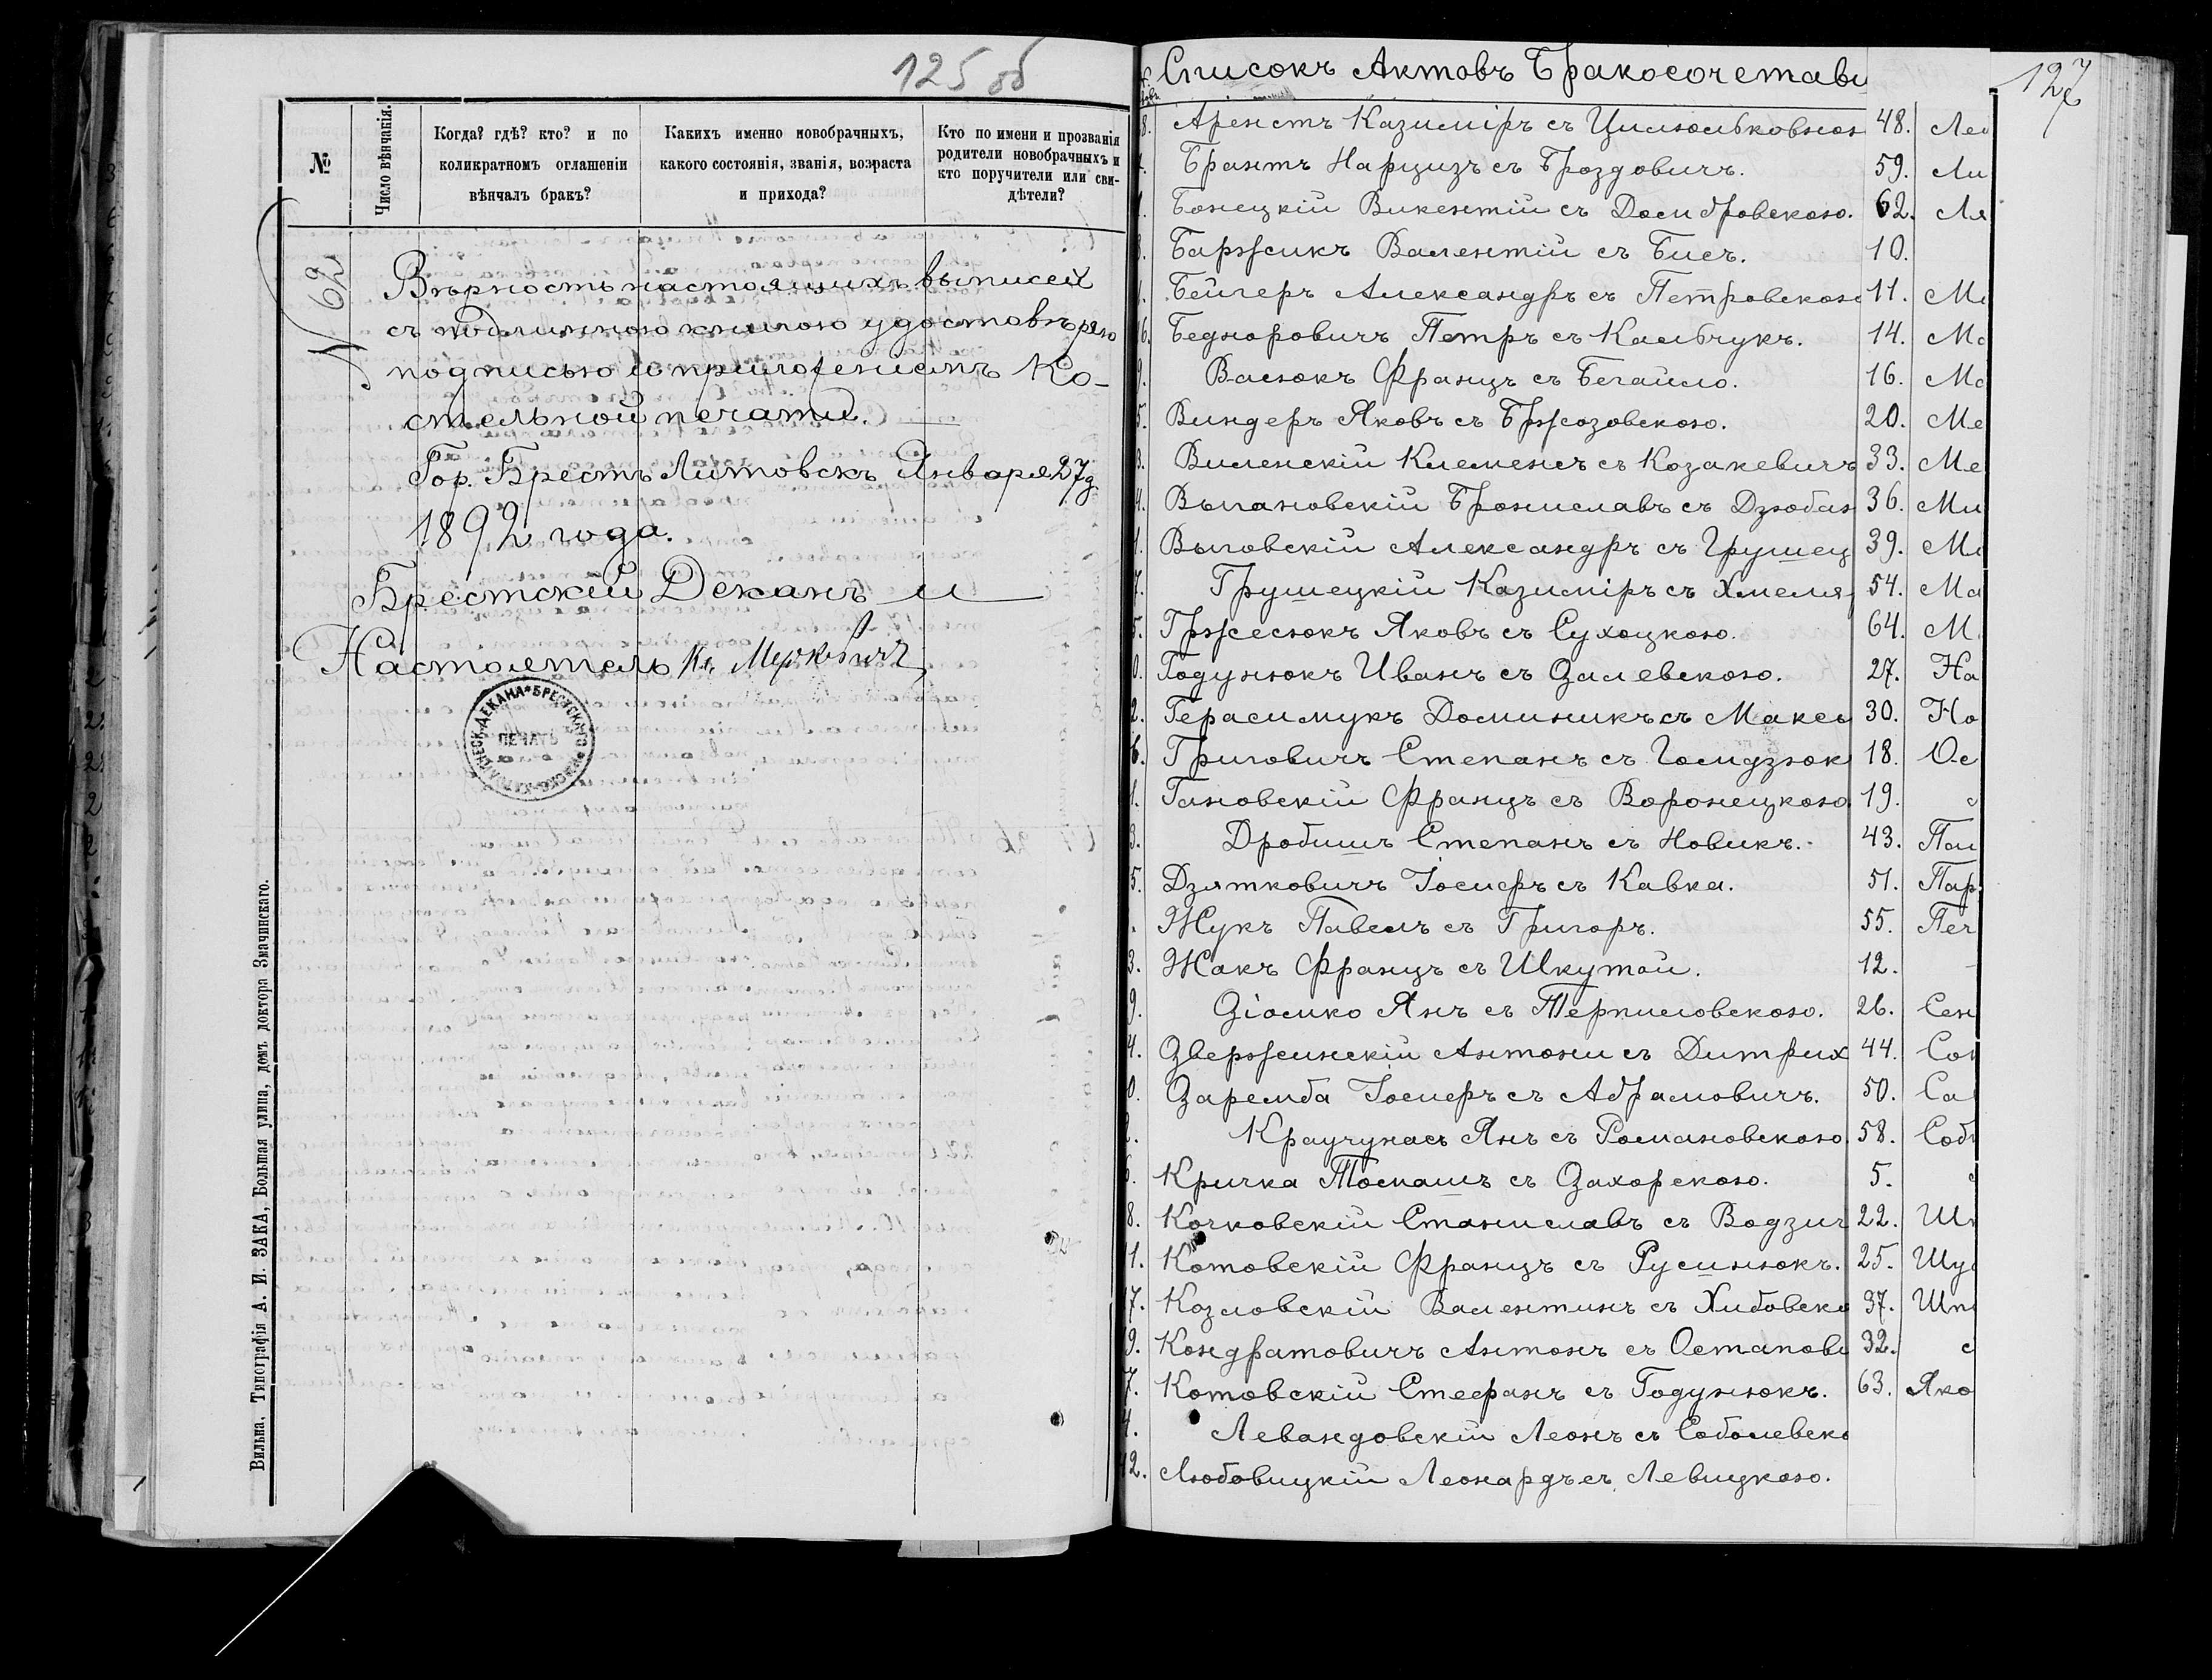 125 об
№
Число вѣнчанія.
Когда? гдѣ? кто? и по
коликратномъ оглашеніи
вѣнчалъ бракъ?
Какихъ именно новобрачныхъ,
какого состоянія, званія, возраста
и прихода?
Кто по имени и прозванія
родители новобрачныхъ и
кто поручители или сви-
дѣтели?
N 62
Вѣрность настоящихъ выписей
съ подлинною книгою удостовѣряю
подписью и приложеніемъ Ко-
стельной печати.
Гор. Брестъ Литовскъ Января 27 д
1892 года.
Брестскій Деканъ и
Настоятель Кс. Меркевичъ
ДЕКАНА БРЕСТСКАГО
ПЕЧАТЬ
Вильна, Типографія А. И. ЗАКА, Большая улица, домъ доктора Змачинскаго.
127
Списокъ Актовъ Бракосочетаві
8. Аренстъ Казиміръ съ 48. Лео
Брантъ Нарцизъ съ Броздовичъ. 59. Ли
Бонецкій Викентій съ Домбровскою. 62. Ля
Баржикъ Валентій съ Бисъ. 10.
Бейгеръ Александръ съ Петровскою 11.
6. Беднаровичъ Петръ съ Камбчукъ. 14. Мо
9. Васюкъ Францъ съ Бегайло. 16. Ма
5. Виндеръ Яковъ съ Бржозовскою. 20. Ме
3. Виленскій Клеменсъ съ Козакевичъ 33. Ме
4. Выгановскій Брониславъ съ Дзюбан 36. Ми
1. Выговскій Александръ съ Грушец 39.
7. Грушецкій Казиміръ съ Хмеля 54. Ма
5. Гржесюкъ Яковъ съ Сухоцкою. 64. М
0. Годунюкъ Иванъ съ Залевскою. 27. На
2. Герасимукъ Доминикъ съ Макси 30. Но
6. Григовичъ Степанъ съ Гомдзюк 18. Ос
1. Гановскій Францъ съ Воронецкою 19.
3. Дробишъ Степанъ съ Новикъ. 43.
5. Дзятковичъ Іосифъ съ Кавка. 51. Пар
Жукъ Павелъ съ Григоръ. 55. Печ
3. Жакъ Францъ съ Шкутой. 12.
9. Зіомко Янъ съ Терпиловскою. 26. Сен
4. Звержинскій Антони съ Дитрих 44. Сок
0. Заремба Іосифъ съ Абрамовичъ. 50. Са
2. Краучунасъ Янъ съ Романовскою. 58. Соб
6. Кричка Томашъ съ Захорскою. 5.
8. Кочковскій Станиславъ съ Водзич 22.
1. Котовскій Францъ съ Русинюкъ. 25. Шу
7. Козловскій Валентинъ съ Хибовско 37.
9. Кондратовичъ Антонъ съ Остапови 32.
7. Котовскій Стефанъ съ Годунюкъ. 63. Яко
4. Левандовскій Леонъ съ Соболевско
12. Любовицкій Леонардъ съ Левицкою.